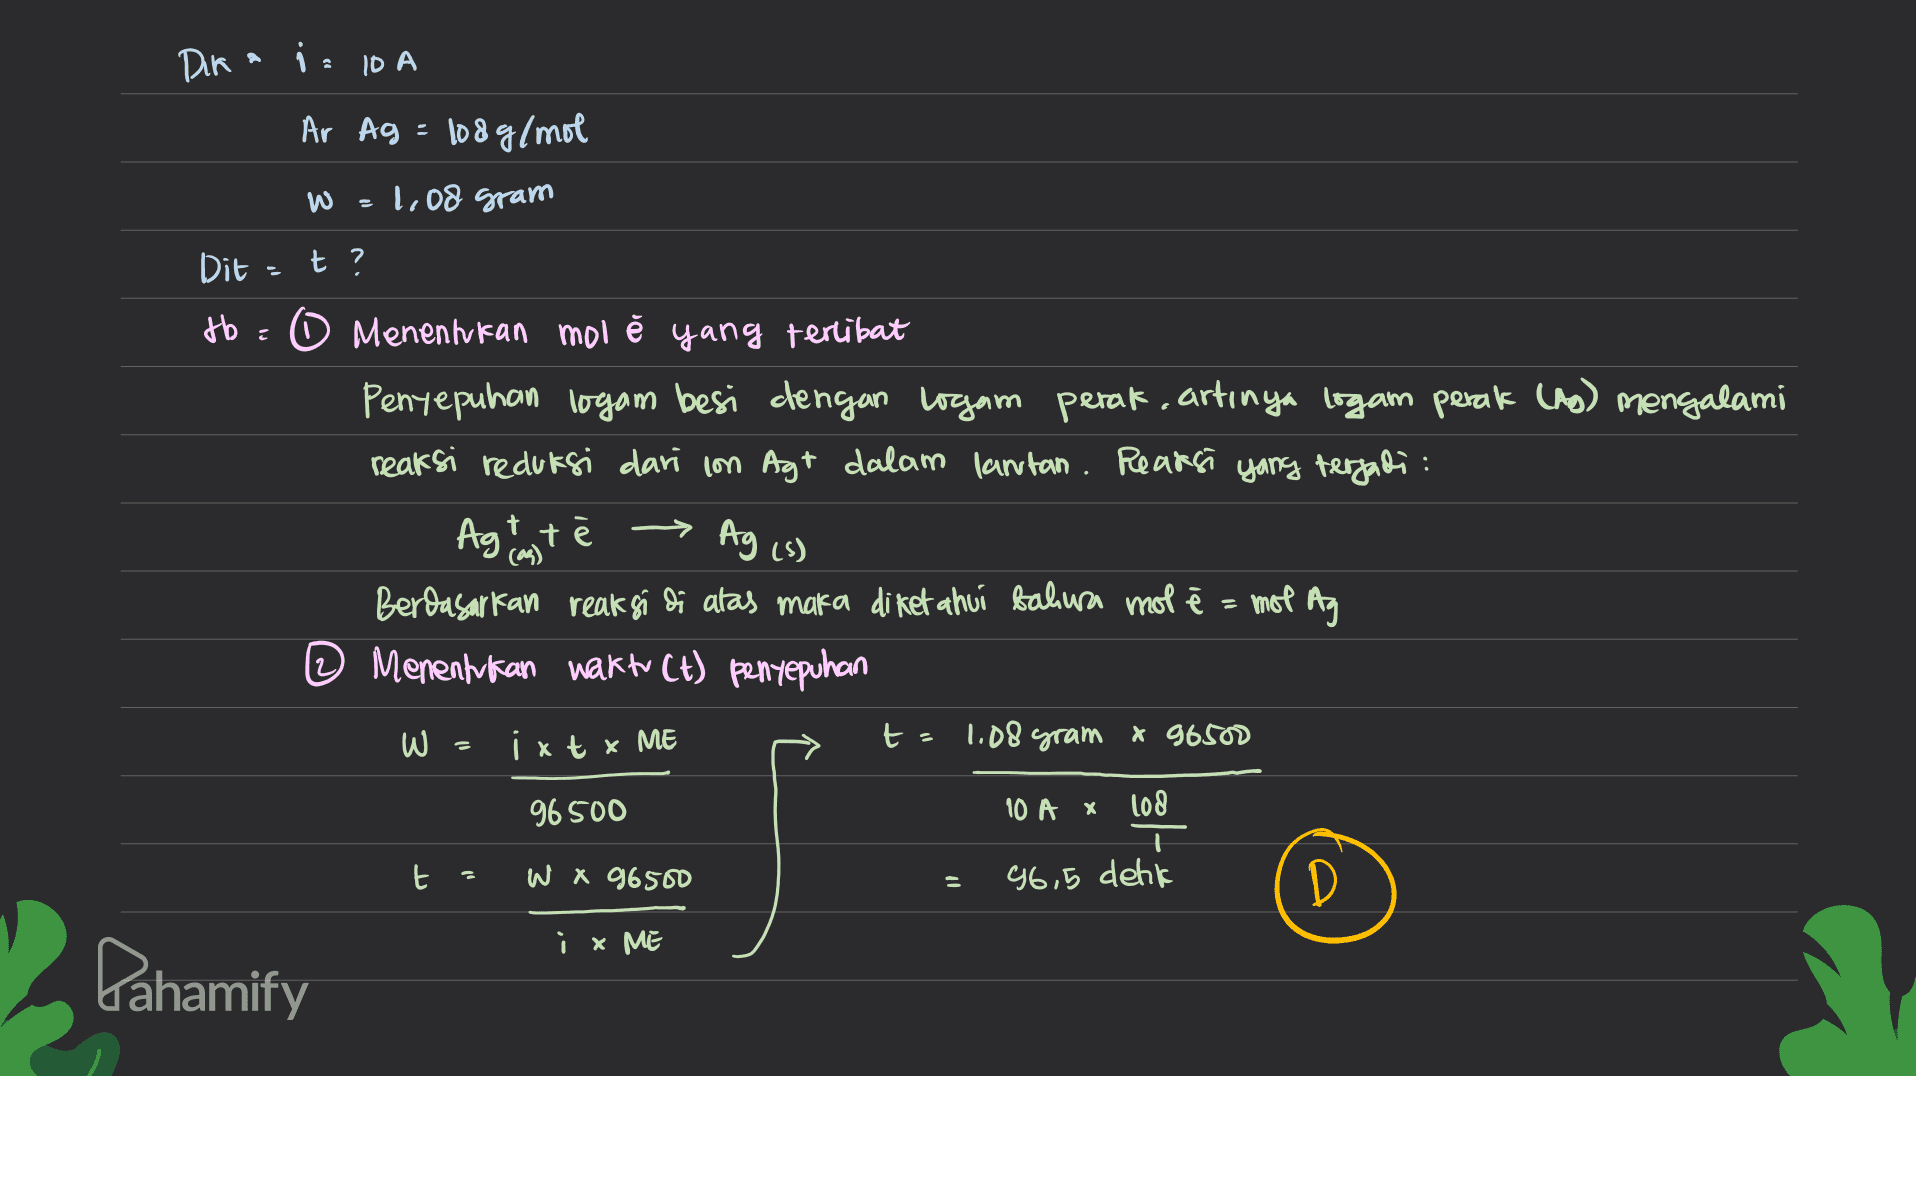 Dik = i = 10 A
Ar Ag = 108 g/mol
W = 1,08 gram
Dit = t ?
Jb = ① Menentukan mol ē yang terlibat
Penyepuhan logam besi dengan logam perak, artinya logam perak (Ag) mengalami
reaksi reduksi dari ion Ag+ dalam larutan. Reaksi yang terjadi :
Ag⁺(aq) + ē → Ag (s)
Berdasarkan reaksi di atas maka diketahui bahwa mol ē = mol Ag
② Menentukan waktu (t) penyepuhan
W = i x t x ME
96500
t = W x 96500
i x ME
t = 1.08 gram x 96500
10 A x 108
1
= 96,5 detik
D
Pahamify